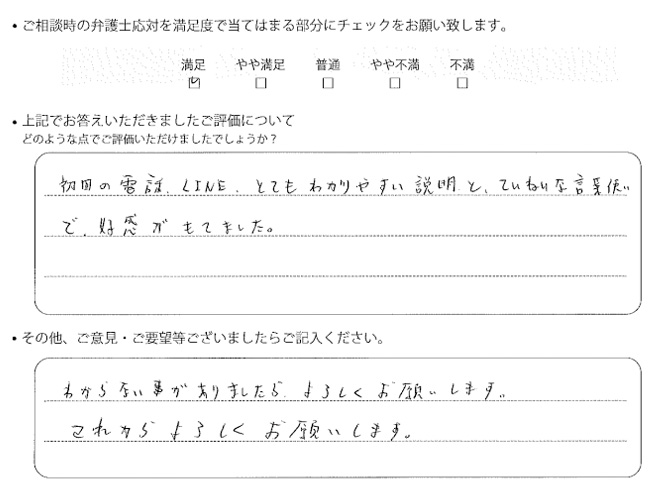 • ご相談時の弁護士応対を満足度で当てはまる部分にチェックをお願い致します。
満足 やや満足 普通 やや不満 不満
☑ □ □ □ □
• 上記でお答えいただきましたご評価について
どのような点でご評価いただけましたでしょうか？
初回の電話、LINE、とてもわかりやすい説明と、ていねいな言葉使い
で、好感がもてました。
• その他、ご意見・ご要望等ございましたらご記入ください。
わからない事がありましたら、よろしくお願いします。
これからよろしくお願いします。